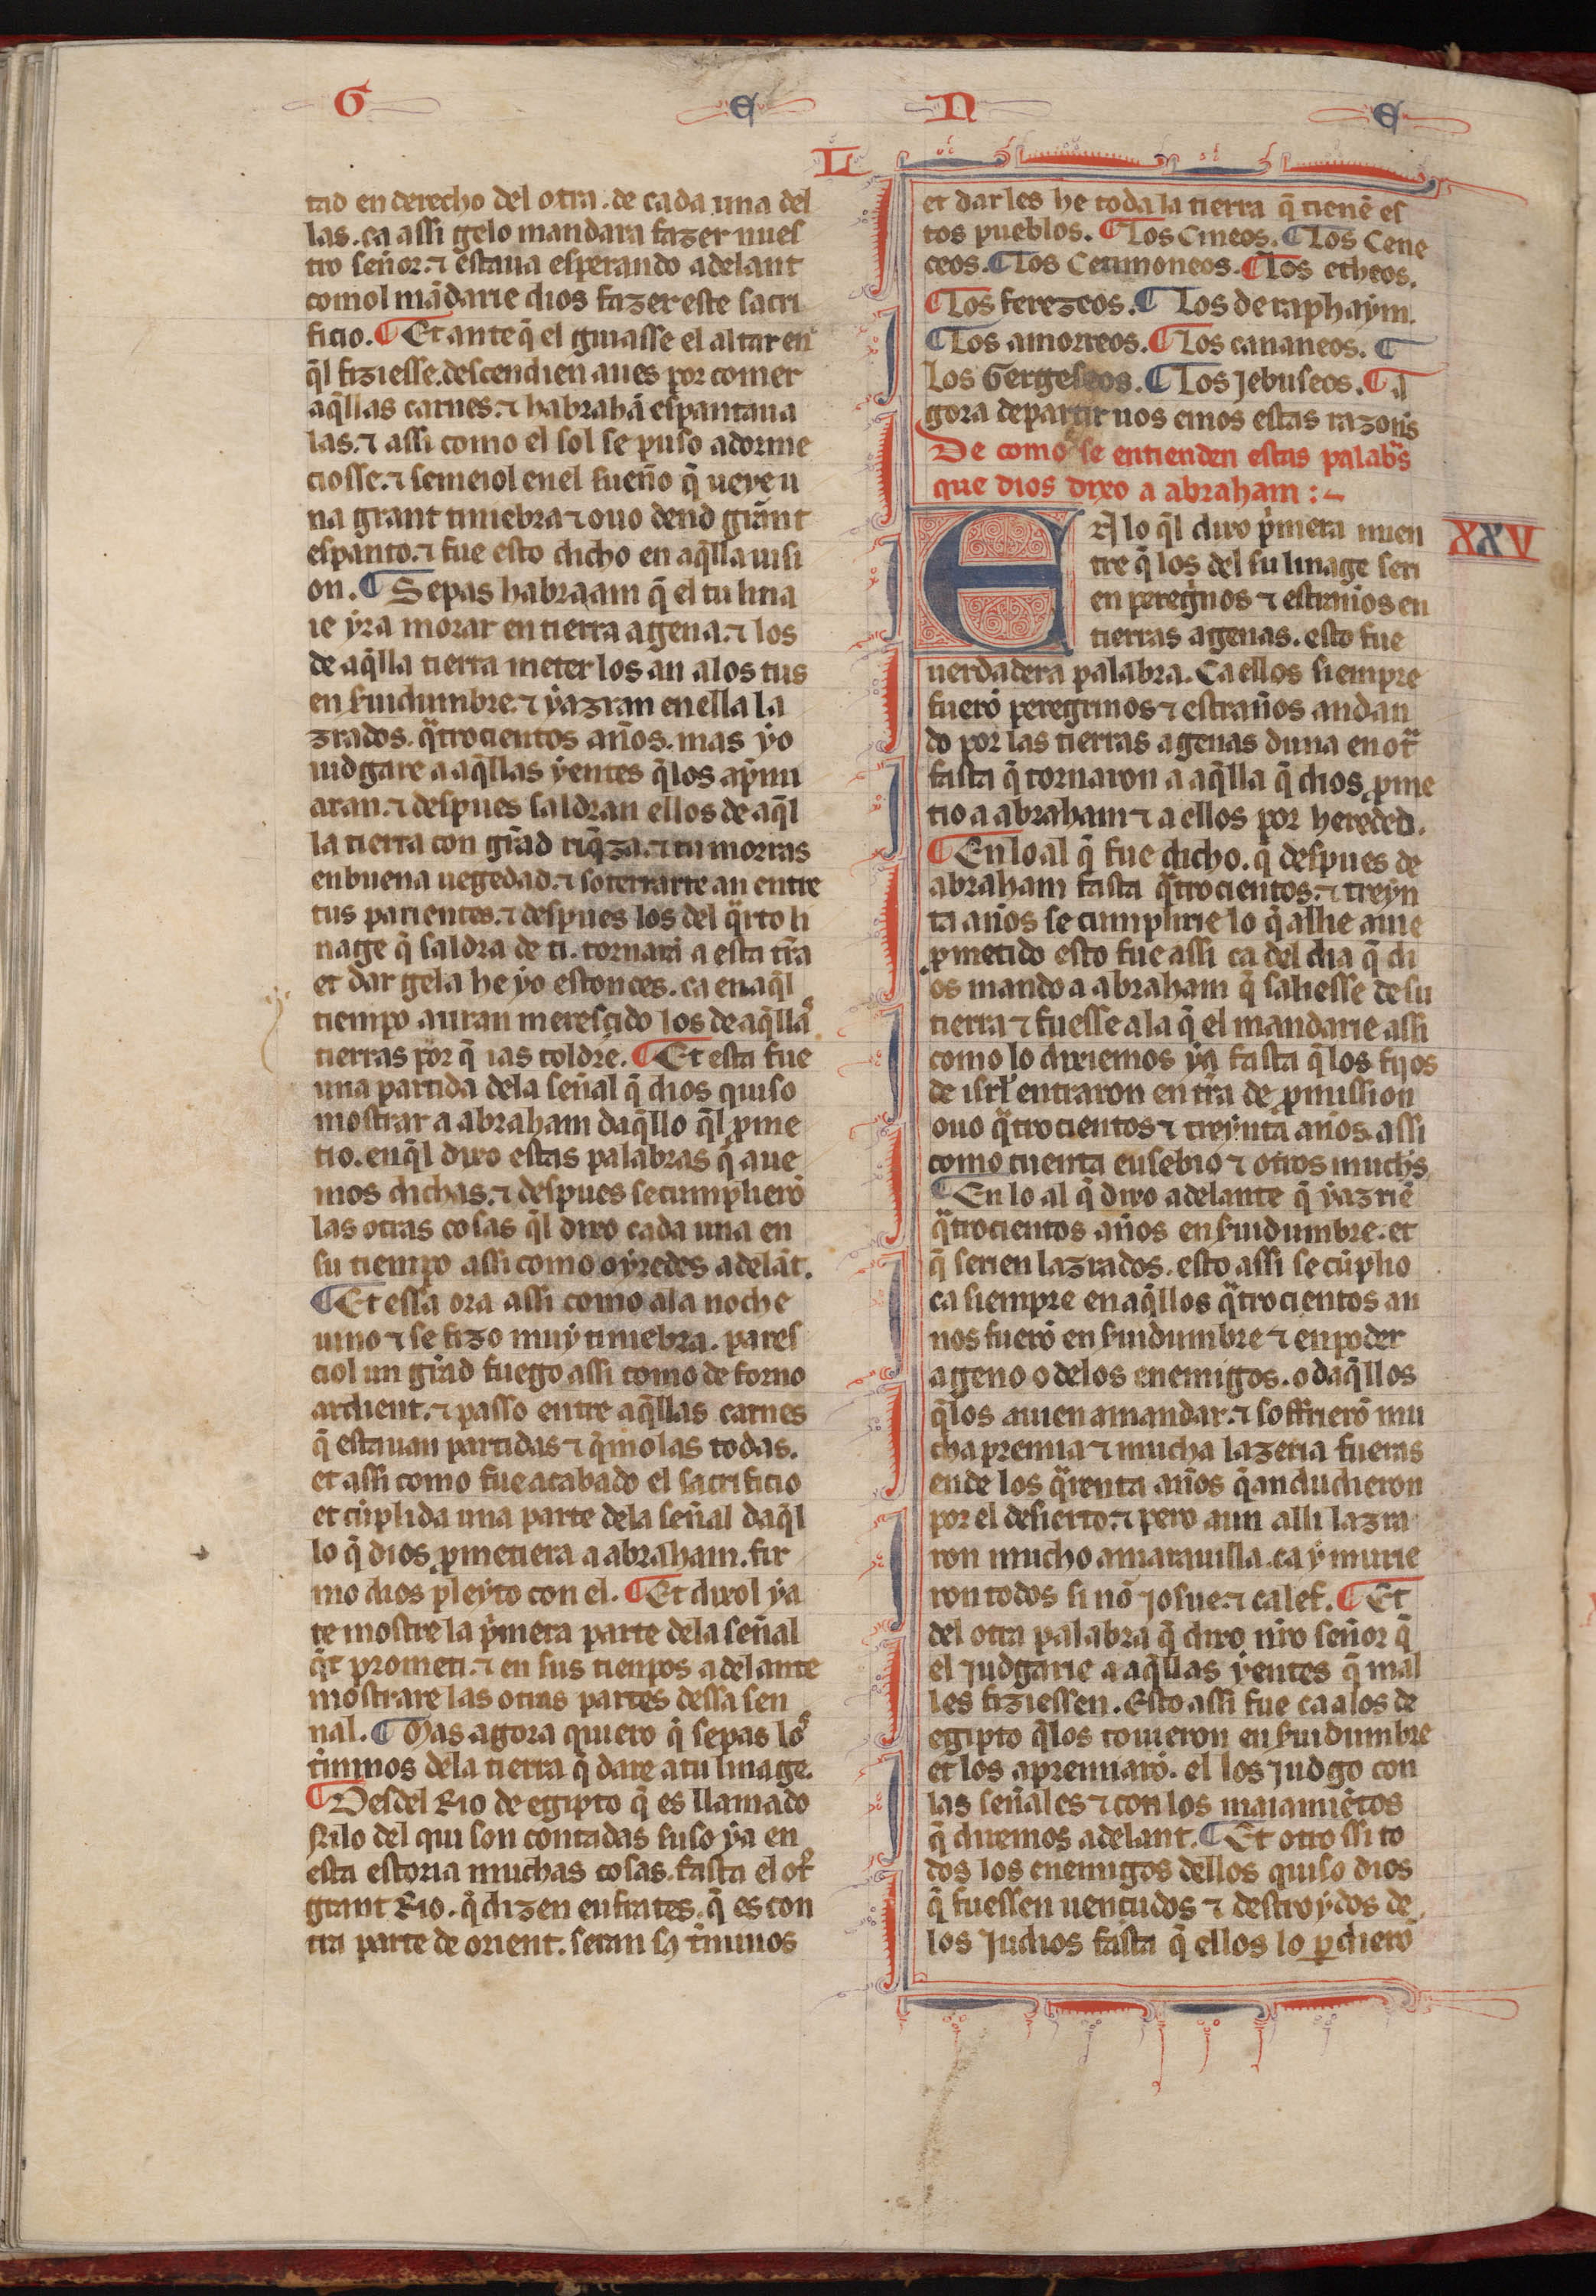 G E N E
L
tad en derecho del otra. de cada una del
las. ca assi gelo mandara fazer nues
tro señor. ⁊ estaua esperando adelant
comol mãdarie dios fazer este sacri
ficio. ¶ Et ante q̃ el guiasse el altar en
q̃l fiziesse. descendien aues por comer
aq̃llas carnes. ⁊ habrahã espantaua
las. ⁊ assi como el sol se puso adorme
ciosse. ⁊ semeiol enel sueño q̃ ueye u
na grant tiniebra ⁊ ouo dend grant
espanto. ⁊ fue esto dicho en aq̃lla uisi
on. ¶ Sepas habraam q̃ el tu lina
ie yra morar en tierra agena. ⁊ los
de aq̃lla tierra meter los an alos tus
en ѕuidumbre. ⁊ yazran en ella la
zrados. q̃trocientos años. mas yo
iudgare a aq̃llas yentes q̃ los ap̃mi
aran. ⁊ despues saldran ellos de aq̃l
la tierra con grãd riq̃za. ⁊ tu morras
en buena uegedad. ⁊ soterrarte an entre
tus parientes. ⁊ despues los del q̃rto li
nage q̃ saldra de ti. tornará a esta tr̃a
et dar gela he yo estonces. ca en aq̃l
tiempo auran merescido los de aq̃lla
tierras por q̃ ias toldre. ¶ Et esta fue
una partida dela señal q̃ dios quiso
mostrar a abraham daq̃llo q̃l ꝓme
tio. en q̃l dixo estas palabras q̃ aue
mos dichas. ⁊ despues se cumplierõ
las otras cosas q̃l dixo cada una en
su tiempo assi como oyredes adelãt.
¶ Et essa ora assi como ala noche
uino ⁊ se fizo muy tiniebra. pares
ciol un grãd fuego assi como de forno
ardient. ⁊ passo entre aq̃llas carnes
q̃ estauan partidas ⁊ q̃molas todas.
et assi como fue acabado el sacrificio
et cũplida una parte dela señal daq̃l
lo q̃ dios ꝓmetiera a abraham. fir
mo dios pleyto con el. ¶ Et dixol ya
te mostre la p̃mera parte dela señal
q̃t prometi. ⁊ en sus tienpos adelante
mostrare las otras partes dessa sen
nal. ¶ Mas agora quiero q̃ sepas los
t̃minos dela tierra q̃ dare atu linage.
¶ Desdel Rio de egipto q̃ es llamado
Nilo del qui son contadas suso ya en
esta estoria muchas cosas. fasta el ot̃
grant Rio. q̃ dizen eufrates. q̃ es con
tra parte de orient. seran sꝯ t̃minos
et dar les he toda la tierra q̃ tienẽ es
tos pueblos. ¶ Los Cineos. ¶ Los Cene
ceos. ¶ Los Cetimoneos. ¶ Los etheos.
¶ Los ferezeos. ¶ Los de raphaym.
¶ Los amorreos. ¶ Los cananeos. ¶
Los Gergeseos. ¶ Los Jebuseos. ¶ A
gora departir uos emos estas razon̄s
De como se entienden estas palab̃s
que dios dixo a abraham :~
XXV
EA lo q̃l dixo p̃mera mien
tre q̃ los del su linage seri
en pereg̃nos ⁊ estranios en
tierras agenas. esto fue
uerdadera palabra. Ca ellos siempre
fuerõ peregrinos ⁊ estraños andan
do por las tierras agenas duna en ot̃
fasta q̃ tornaron a aq̃lla q̃ dios ꝓme
tio a abraham ⁊ a ellos por hereded.
¶ En lo al q̃ fue dicho. q̃ despues de
abraham fasta q̃trocientos. ⁊ treyn
ta años se cumplirie lo q̃ allie auie
ꝓmetido esto fue assi ca del dia q̃ di
os mando a abraham q̃ saliesse de su
tierra ⁊ fuesse ala q̃ el mandarie assi
como lo dixiemos ya fasta q̃ los fijos
de isrl̃ entraron en tr̃a de ꝓmission
ouo q̃trocientos ⁊ treynta años assi
como cuenta eusebio ⁊ otros much̃s
¶ En lo al q̃ dixo adelante q̃ yazriẽ
q̃trocientos años en ѕuidumbre. et
q̃ serien lazrados. esto assi se cũplio
ca siempre en aq̃llos q̃trocientos an
nos fuerõ en ѕuidumbre ⁊ en poder
ageno o delos enemigos. o daq̃llos
q̃ los auien amandar. ⁊ soffrierõ mu
cha premia ⁊ mucha lazeria fueras
ende los q̃renta años q̃ andudieron
por el desierto. ⁊ pero aun alli lazra
ron mucho amarauilla. ca y murie
ron todos si nõ Josue. ⁊ calef. ¶ Et
del otra palabra q̃ dixo nr̃o señor q̃
el judgarie a aq̃llas yentes q̃ mal
les fiziessen. Esto assi fue ca alos de
egipto q̃ los touieron en ѕuidumbre
et los apremiarõ. el los judgo con
las señales ⁊ con los maiamiẽtos
q̃ diremos adelant. ¶ Et otro ssi to
dos los enemigos dellos quiso dios
q̃ fuessen uencudos ⁊ destroydos de
los Judios fasta q̃ ellos lo ꝑdierõ